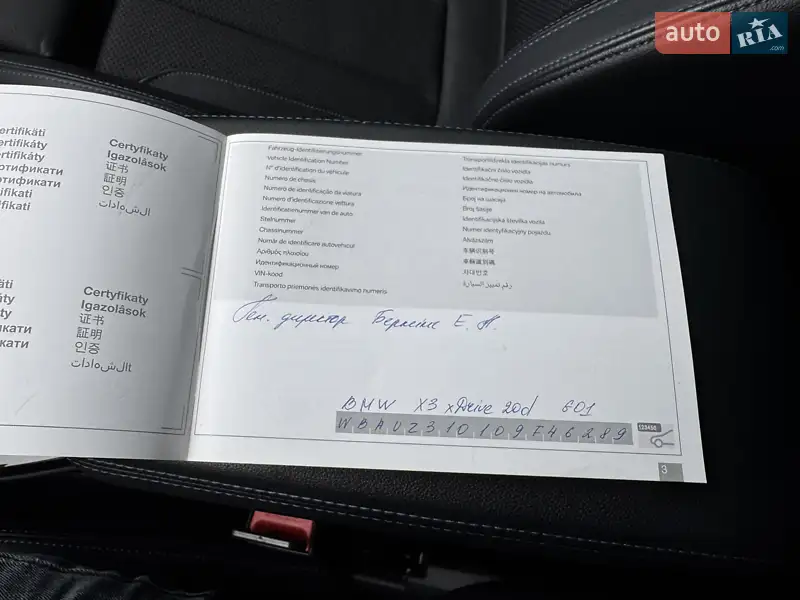 auto RIA .com
ertifikāti
ertifikáty
ertifikáty
ртификати
ртификати
tifikati
ifikati
Certyfikaty
Igazolások
证书
証明
인증
Certyfikaty
Igazolások
证书
証明
인증
Fahrzeug-Identifizierungsnummer
Vehicle Identification Number
N° d'identification du véhicule
Numero de chasis
Numero de identificação da viatura
Numero d'identificazione vettura
Identificatienummer van de auto
Stelnummer
Chassinummer
Număr de identificare autovehicul
Αριθμός πλαισίου
Идентификационный номер
VIN-kood
Transporto priemonės identifikavimo numeris
Transportlīdzekļa identifikācijas numurs
Identifikační číslo vozidla
Identifikačné číslo vozidla
Идентификационен номер на автомобила
Број на шасија
Broj šasije
Identifikacijska številka vozila
Numer identyfikacyjny pojazdu
Alvázszám
车辆识别号
車輛識別碼
차대번호
رقم تمييز السيارة
Ген. директор Е. А.
BMW X3 xDrive 20d G01
WBAUZ310109F46289
123456
3